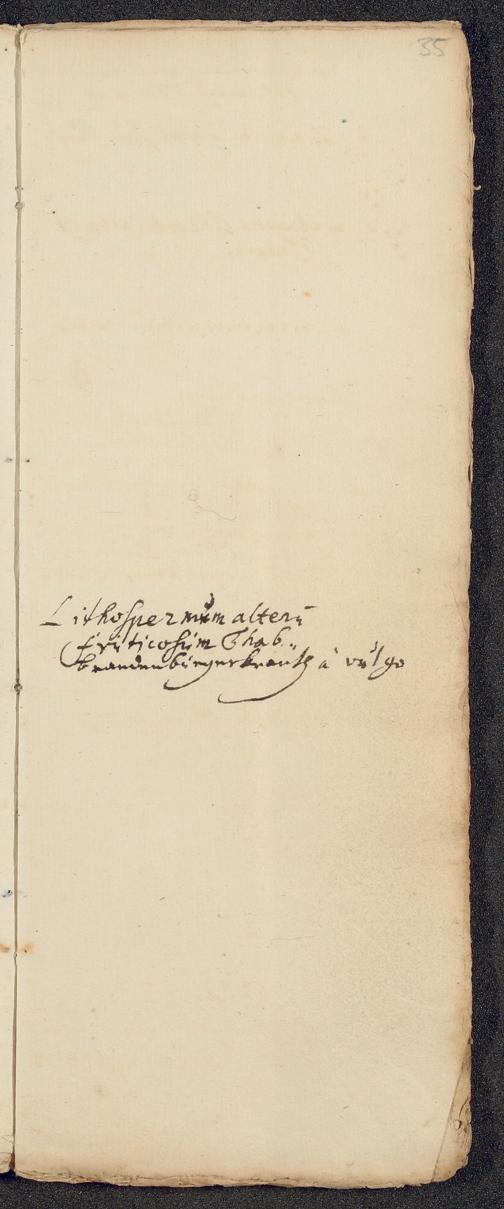 35
Lithospermum alterū
fruticosum Thab.
brandenburgerkrautt à vulgo